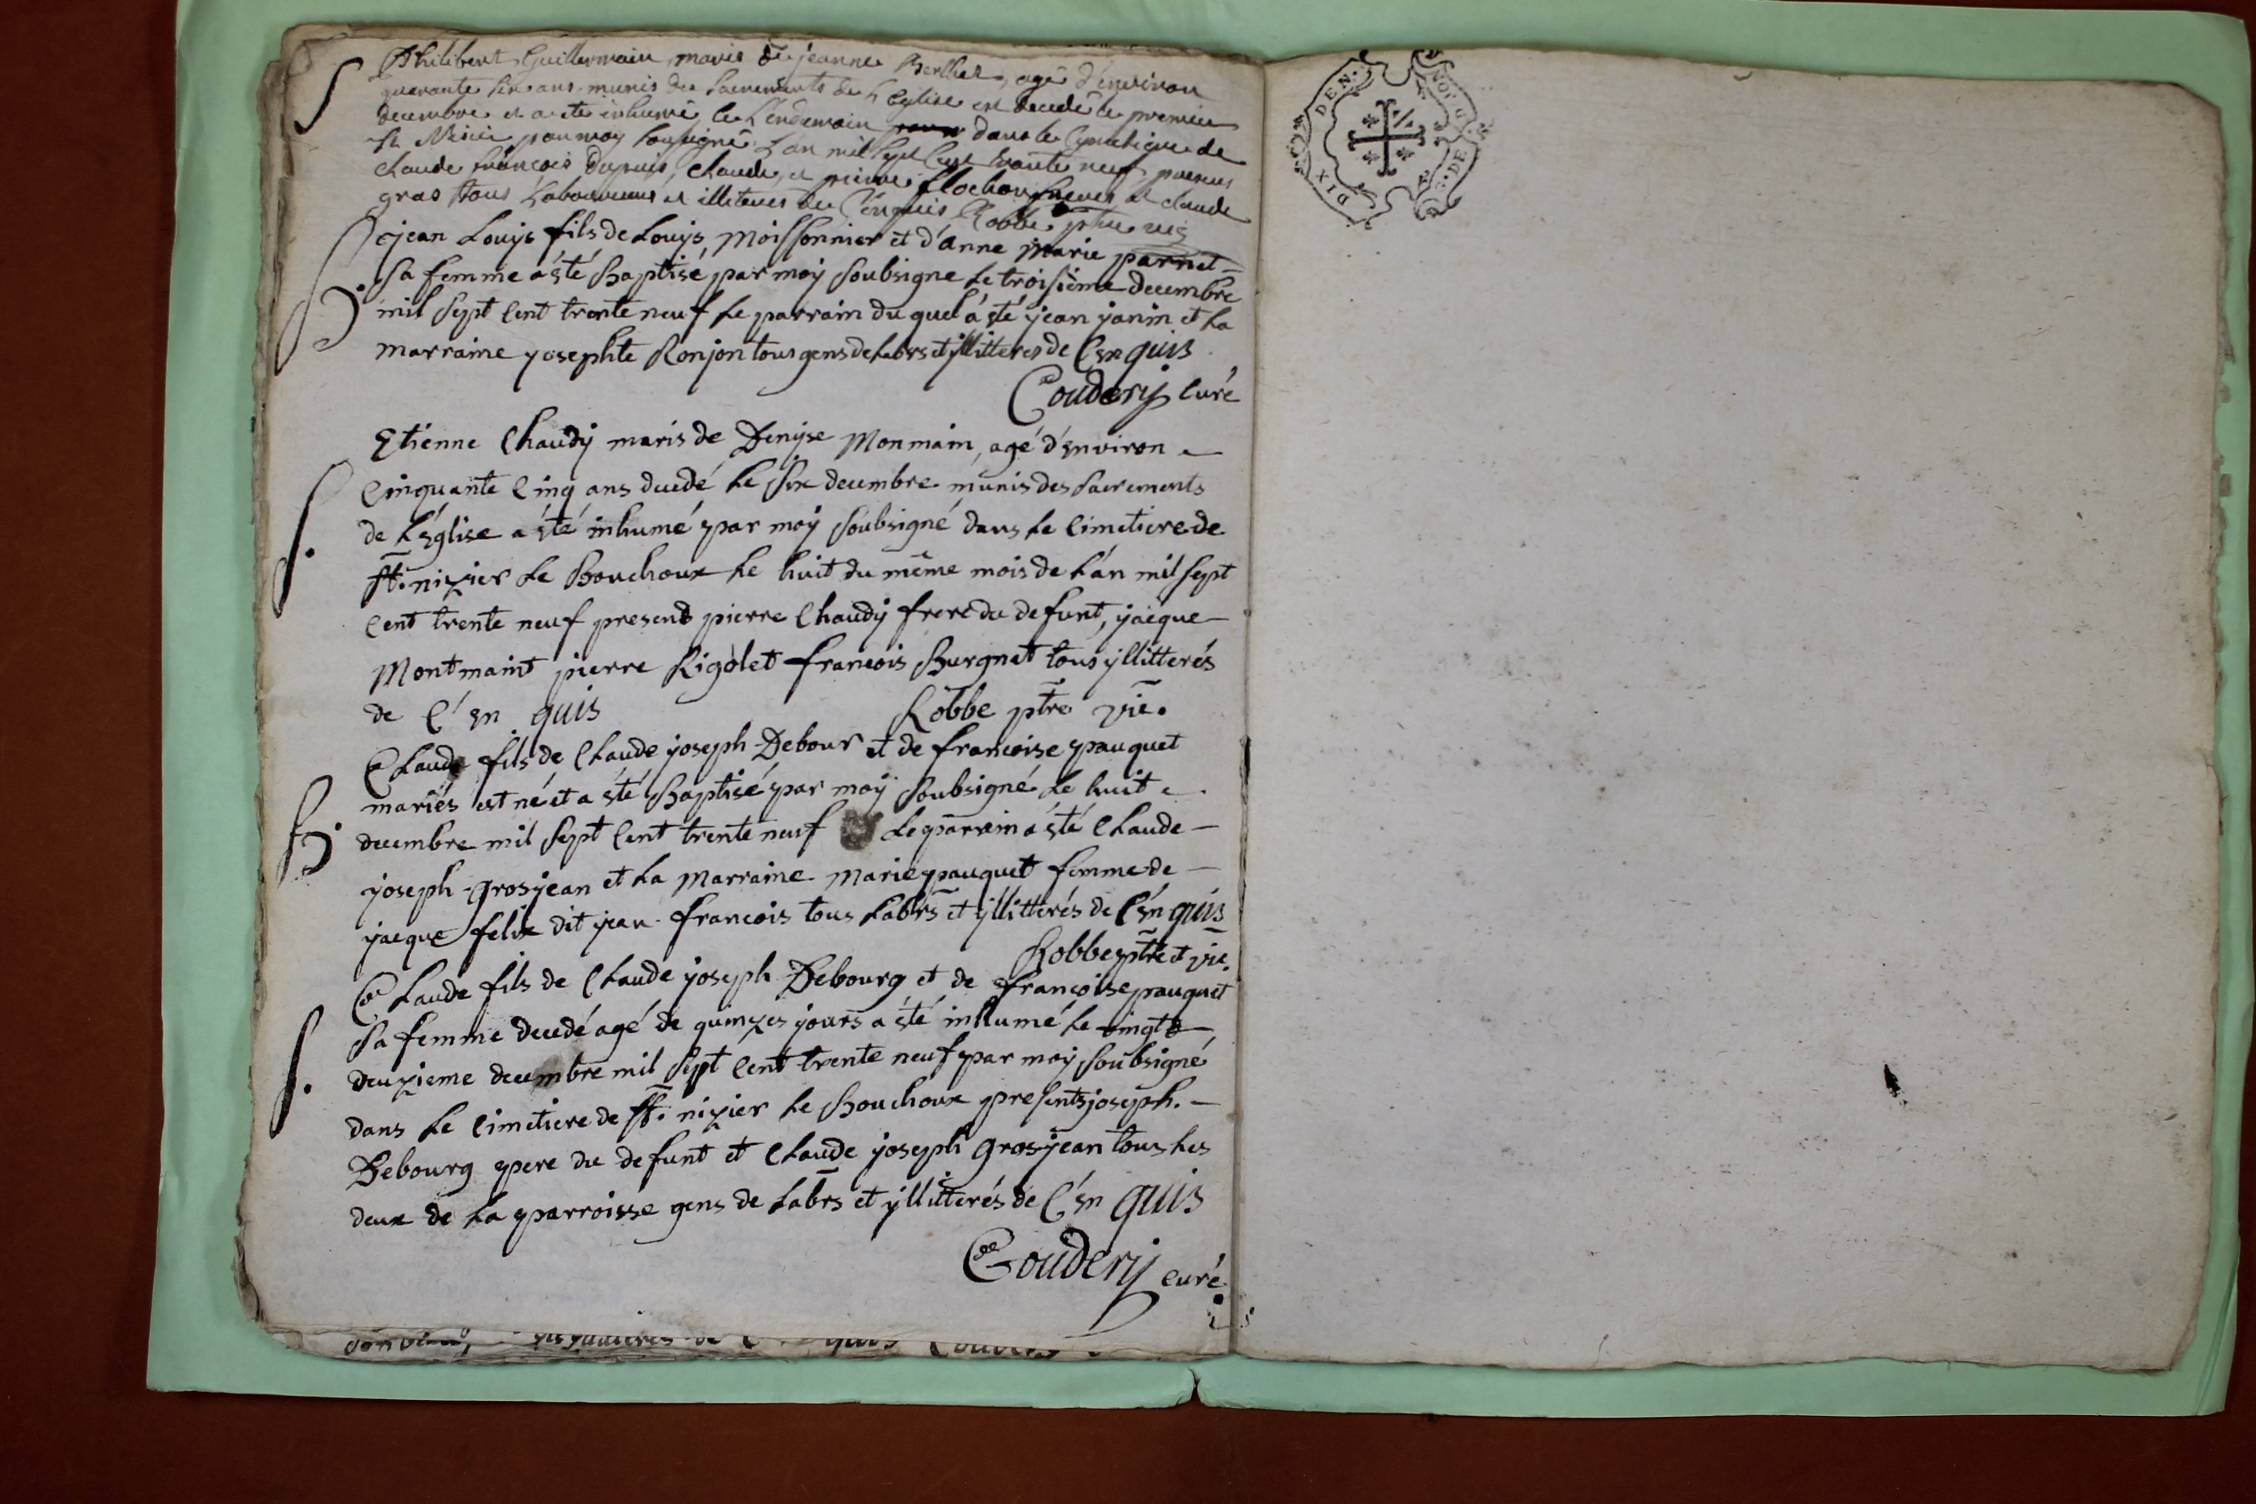 S
Philibert Guillermain maris de jeanne Berthet, agé d'environ
quarante six ans munis des Sacrements de l'Eglise est decedé le premier
decembre et a eté inhumé le Lendemain dans le Cymetiere de
St Nisié par moy soussigné L'an mil sept cent trante neuf presens
Claude François Dupuis, Claude et pierre flochon freres et claude
gras tous Laboureurs et illiteres de Ce enquis Robbe ptre vic
B.
jean Louys fils de Louys Moissonnier et d'anne Marie parnet
sa femme a été Baptisé par moy soubsigne le troisième decembre
mil sept cent trente neuf le parrain du quel a été jean janin et la
marraine josephte Ronjon tous gens de labrs et yllitteres de C'en quis
Coudery curé
S.
Etienne Chaudy maris de Denyse Monmain, agé d'environ
cinquante cinq ans decedé le six decembre munis des sacrements
de l'église a été inhumé par moy soubsigné dans le cimetiere de
St. nizier le Bouchoux le huit du même mois de l'an mil sept
cent trente neuf present pierre Chaudy frere du defunt, jacque
Montmaint pierre Rigolet francois Burgnet tous yllitterés
de C'en quis Robbe ptre vic.
B.
Claude fils de Claude joseph Debour et de francoise pauquet
mariés est né et a été Baptisé par moy soubsigné le huit
decembre mil sept cent trente neuf le parrein a été Claude
joseph grosjean et la Marraine Marie pauquet femme de
jacque felix dit jean francois tous labrs et yllitterés de C'en quis
Robbe ptre et vic.
S.
Claude fils de Claude joseph Debourg et de françoise pauquet
sa femme decedé agé de quinzes jours a été inhumé le vingt
deuxieme decembre mil sept cent trente neuf par moy soubsigné
dans le cimetiere de St. nizier le Bouchoux presents joseph
Debourg pere du defunt et Claude joseph grosjean tous les
deux de la parroisse gens de labrs et yllitterés de C'en quis
Coudery curé
DIX DEN. DE